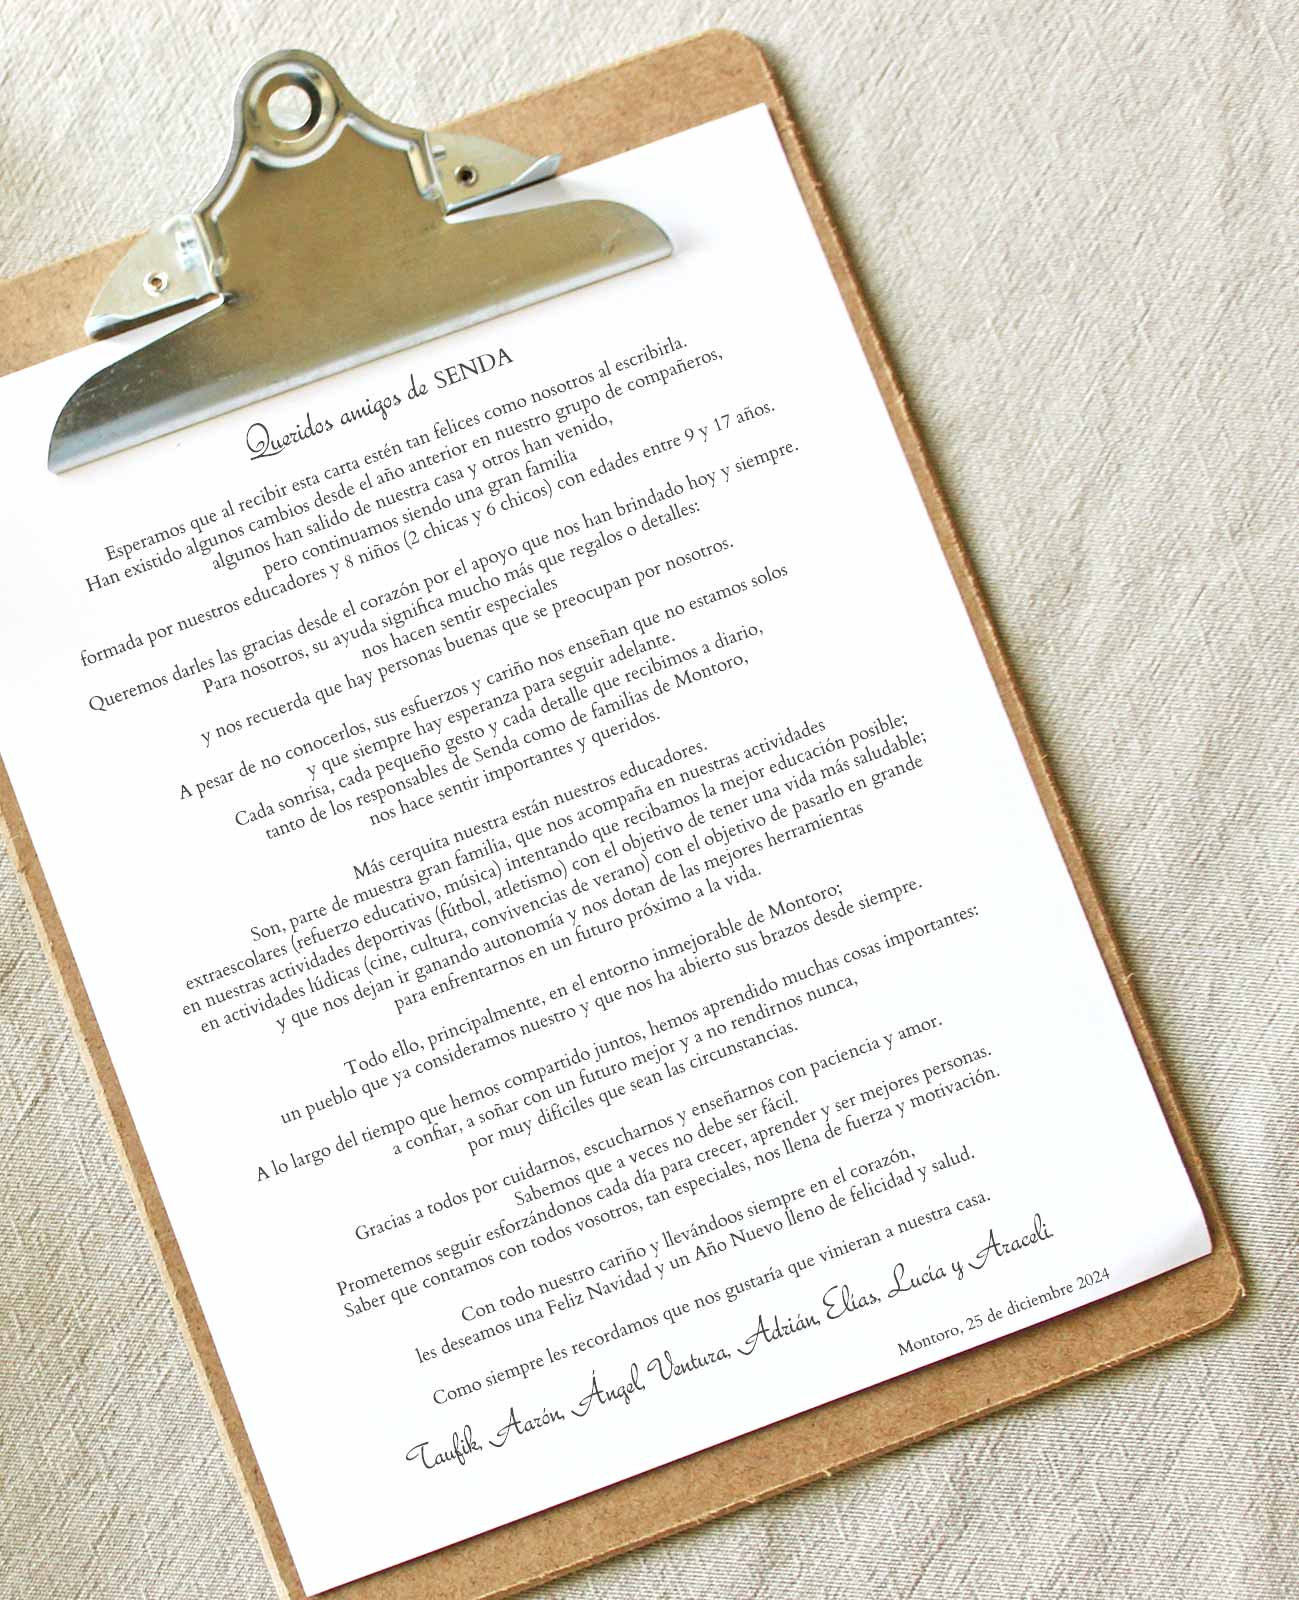 Queridos amigos de SENDA
Esperamos que al recibir esta carta estén tan felices como nosotros al escribirla.
Han existido algunos cambios desde el año anterior en nuestro grupo de compañeros,
algunos han salido de nuestra casa y otros han venido,
pero continuamos siendo una gran familia
formada por nuestros educadores y 8 niños (2 chicas y 6 chicos) con edades entre 9 y 17 años.
Queremos darles las gracias desde el corazón por el apoyo que nos han brindado hoy y siempre.
Para nosotros, su ayuda significa mucho más que regalos o detalles:
nos hacen sentir especiales
y nos recuerda que hay personas buenas que se preocupan por nosotros.
A pesar de no conocerlos, sus esfuerzos y cariño nos enseñan que no estamos solos
y que siempre hay esperanza para seguir adelante.
Cada sonrisa, cada pequeño gesto y cada detalle que recibimos a diario,
tanto de los responsables de Senda como de familias de Montoro,
nos hace sentir importantes y queridos.
Más cerquita nuestra están nuestros educadores.
Son, parte de muestra gran familia, que nos acompaña en nuestras actividades
extraescolares (refuerzo educativo, música) intentando que recibamos la mejor educación posible;
en nuestras actividades deportivas (fútbol, atletismo) con el objetivo de tener una vida más saludable;
en actividades lúdicas (cine, cultura, convivencias de verano) con el objetivo de pasarlo en grande
y que nos dejan ir ganando autonomía y nos dotan de las mejores herramientas
para enfrentarnos en un futuro próximo a la vida.
Todo ello, principalmente, en el entorno inmejorable de Montoro;
un pueblo que ya consideramos nuestro y que nos ha abierto sus brazos desde siempre.
A lo largo del tiempo que hemos compartido juntos, hemos aprendido muchas cosas importantes:
a confiar, a soñar con un futuro mejor y a no rendirnos nunca,
por muy difíciles que sean las circunstancias.
Gracias a todos por cuidarnos, escucharnos y enseñarnos con paciencia y amor.
Sabemos que a veces no debe ser fácil.
Prometemos seguir esforzándonos cada día para crecer, aprender y ser mejores personas.
Saber que contamos con todos vosotros, tan especiales, nos llena de fuerza y motivación.
Con todo nuestro cariño y llevándoos siempre en el corazón,
les deseamos una Feliz Navidad y un Año Nuevo lleno de felicidad y salud.
Como siempre les recordamos que nos gustaría que vinieran a nuestra casa.
Taufik, Aarón, Ángel, Ventura, Adrián, Elías, Lucía y Araceli
Montoro, 25 de diciembre 2024